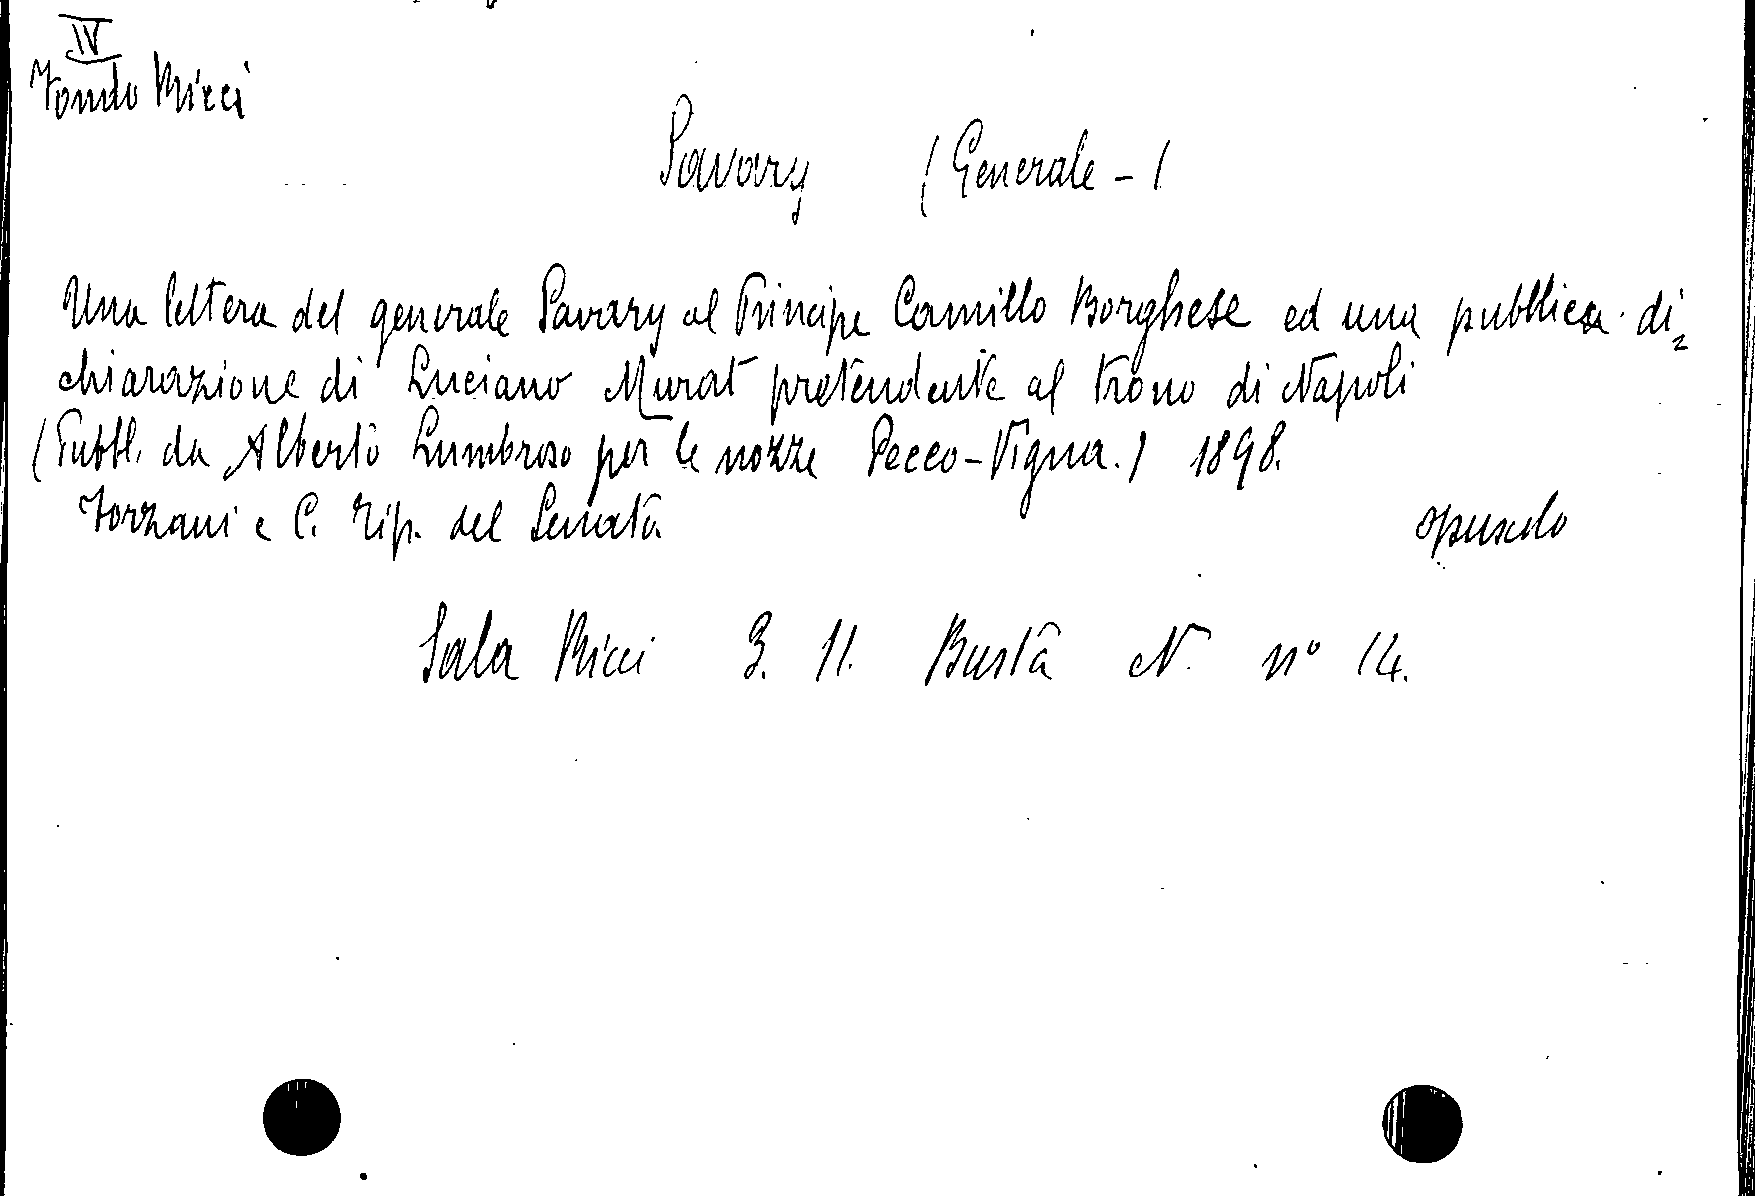 IV
Fondo Ricci
Savary (Generale - )
Una lettera del generale Savary al Principe Camillo Borghese ed una pubblica di=
chiarazione di Luciano Murat pretendente al trono di Napoli
(Pubbl. da Alberto Lumbroso per le nozze Pecco-Vigna.) 1898.
Forzani e C. Tip. del Senato
opuscolo
Sala Ricci 3. 11. Busta N. n° 14.